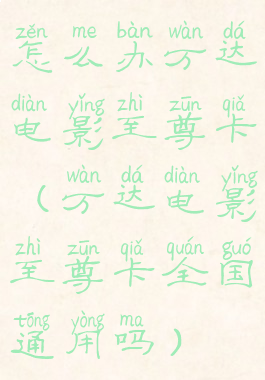 zěn me bàn wàn dá
怎么办万达
diàn yǐng zhì zūn qiǎ
电影至尊卡
wàn dá diàn yǐng
（万达电影
zhì zūn qiǎ quán guó
至尊卡全国
tōng yòng ma
通用吗）